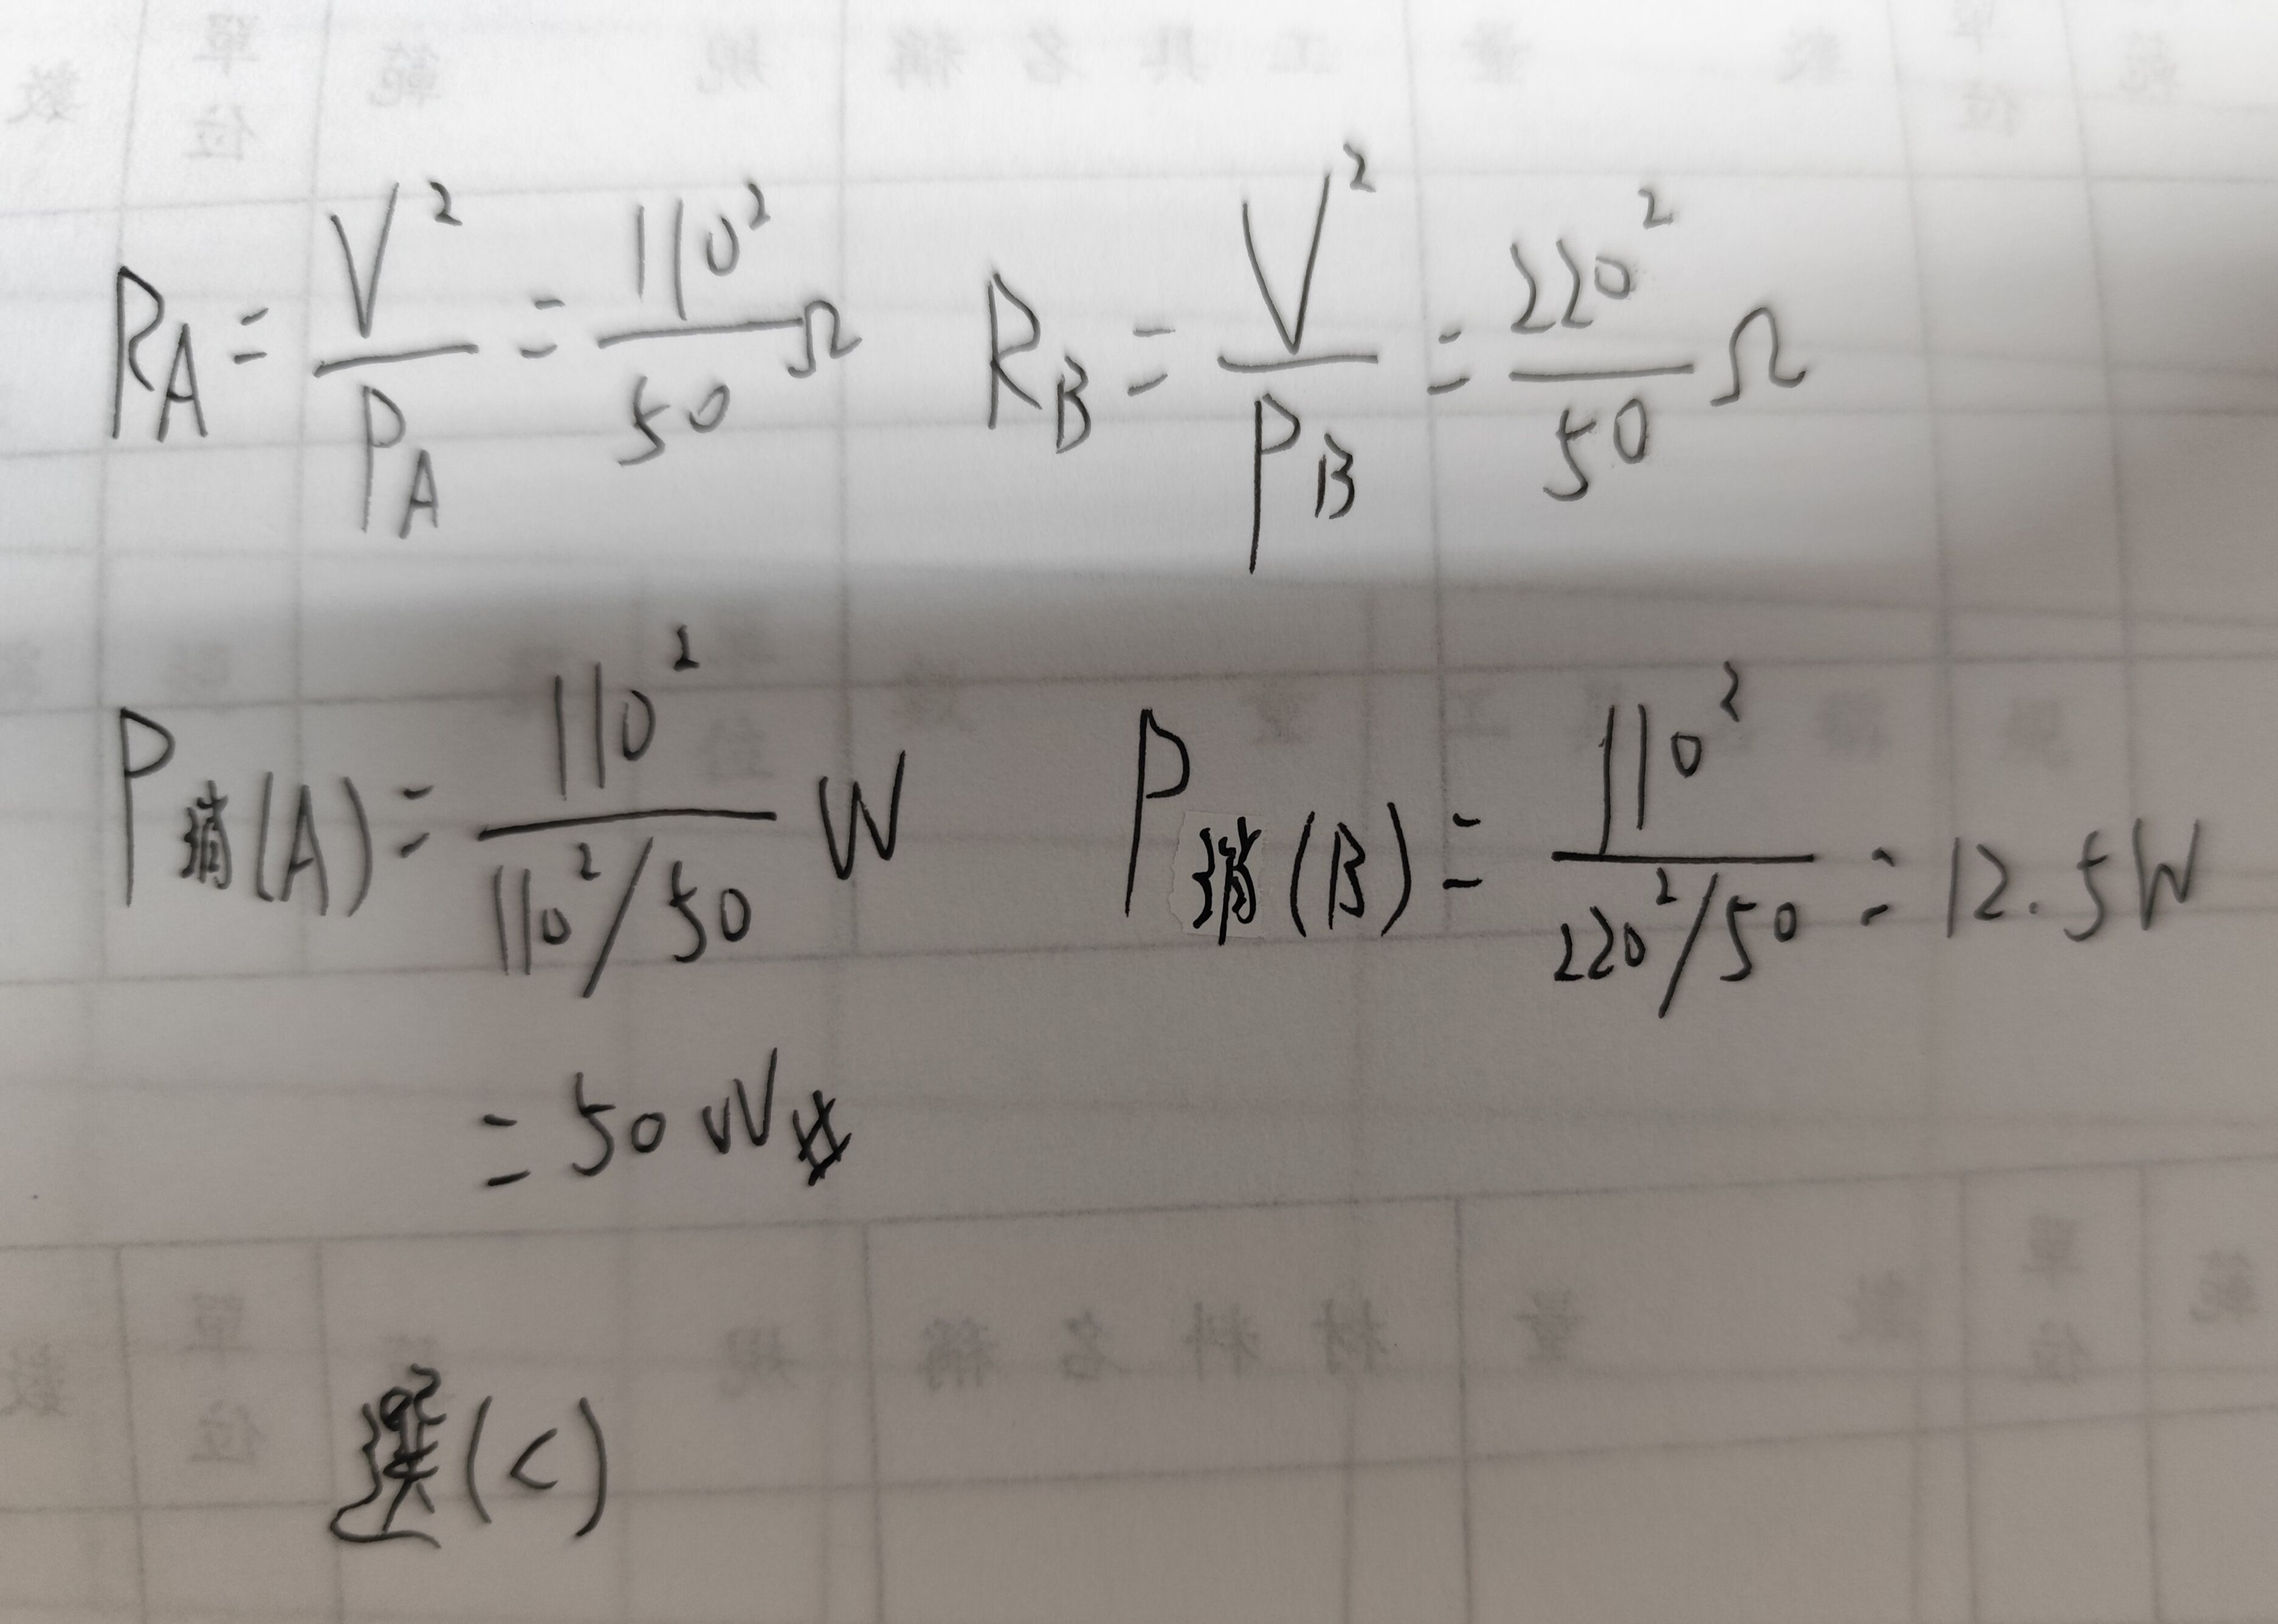 R_A = V² / P_A = 110² / 50 Ω   R_B = V² / P_B = 220² / 50 Ω
P消(A) = 110² / (110²/50) W   P消(B) = 110² / (220²/50) = 12.5W
= 50W #
選(C)